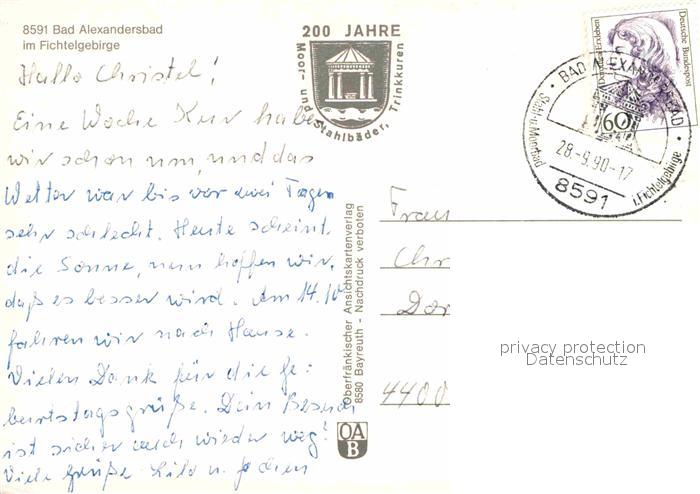 8591 Bad Alexandersbad
im Fichtelgebirge
200 JAHRE
Moor- und Stahlbäder, Trinkkuren
Hallo Christel!
Eine Woche Kur habe
wir schon um, und das
Wetter war bis vor zwei Tagen
sehr schlecht. Heute scheint
die Sonne, nun hoffen wir,
daß es besser wird. Am 14.10
fahren wir nach Hause.
Vielen Dank für die Ge=
burtstagsgrüße. Dein Besuch
ist sicher auch wieder weg!
Viele Grüße Lilo u. Jochen
Oberfränkischer Ansichtskartenverlag
8580 Bayreuth - Nachdruck verboten
OA
B
Deutsche Bundespost
60
BAD ALEXANDERSBAD
28.-9.90-17
8591
i. Fichtelgebirge
Frau
Chr
Dor
4400
privacy protection
Datenschutz